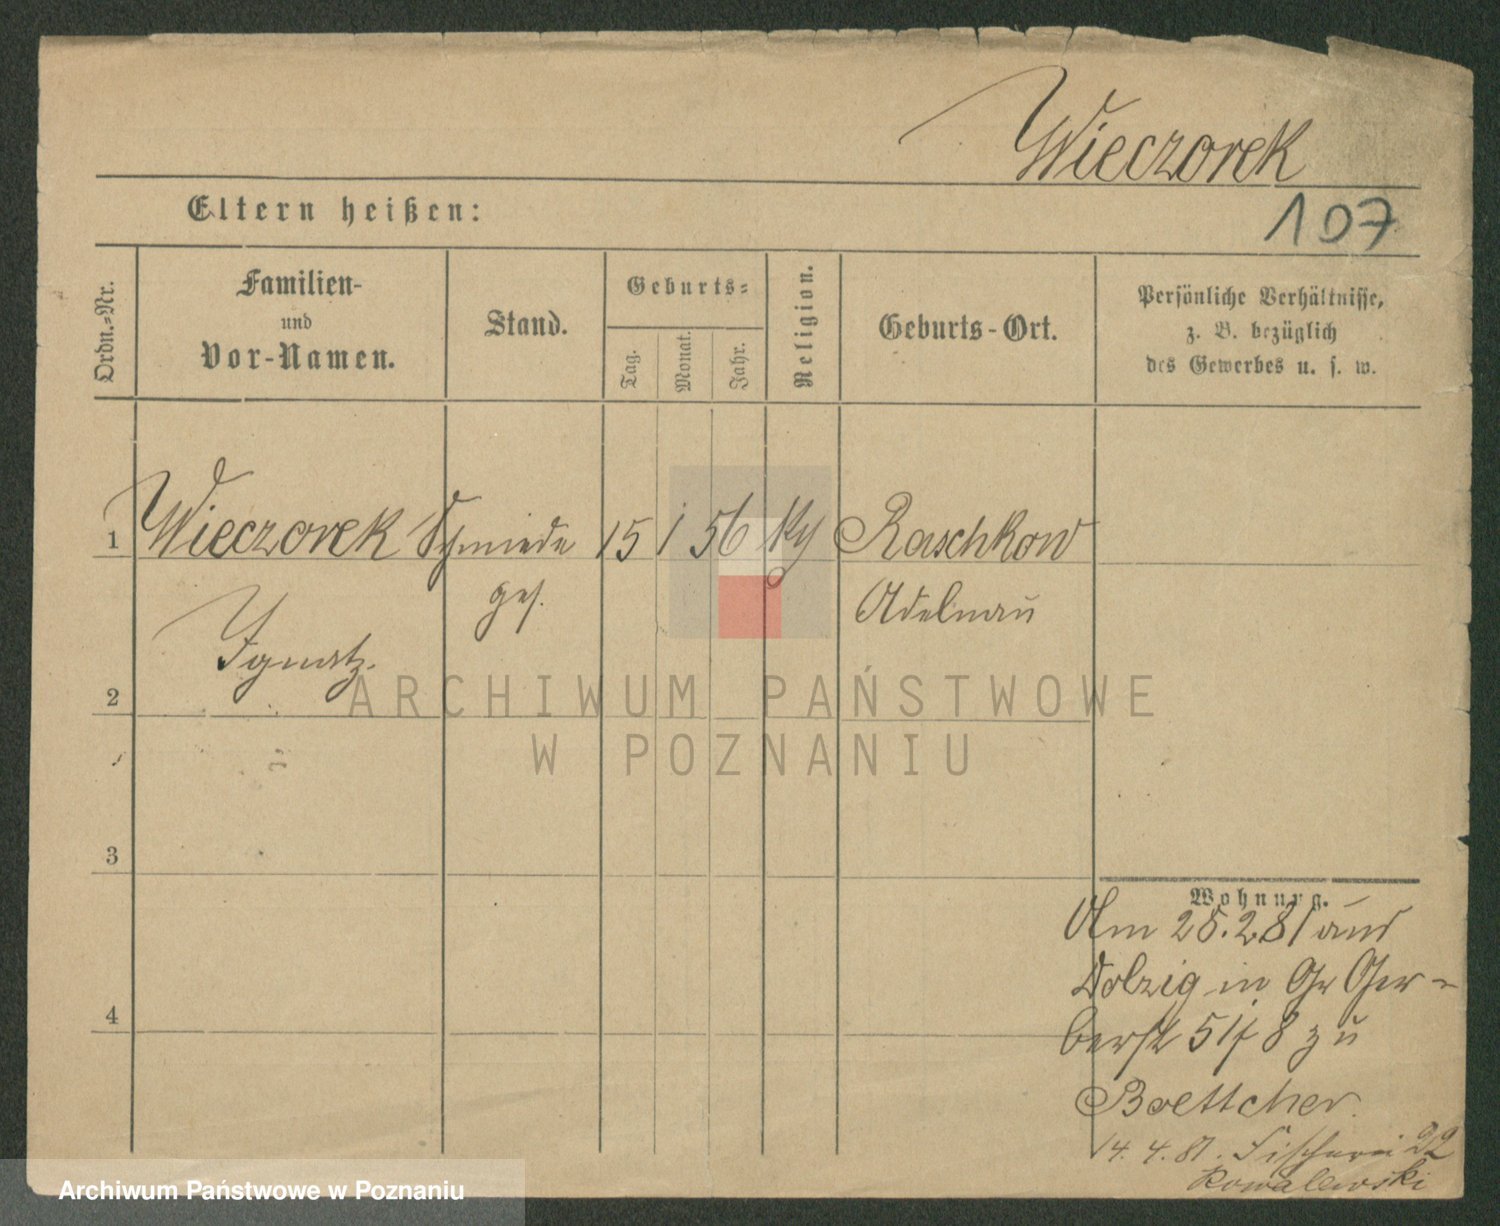 Wieczorek
107
Eltern heißen:
Ordn.-Nr.
Familien-
und
Vor-Namen.
Stand.
Geburts-
Tag.
Monat.
Jahr.
Religion.
Geburts-Ort.
Persönliche Verhältnisse,
z. B. bezüglich
des Gewerbes u. s. w.
1 Wieczorek Schmiede 15 1 56 Raschkow
Ignatz. ges. Adelnau
2
3
4
Wohnung.
Am 28.2.81 aus
Dolzig in Gr Ger-
berst 51 8 zu
Boettcher.
14. 4. 81. Fischerei 22
Kowalewski
ARCHIWUM PAŃSTWOWE
W POZNANIU
Archiwum Państwowe w Poznaniu